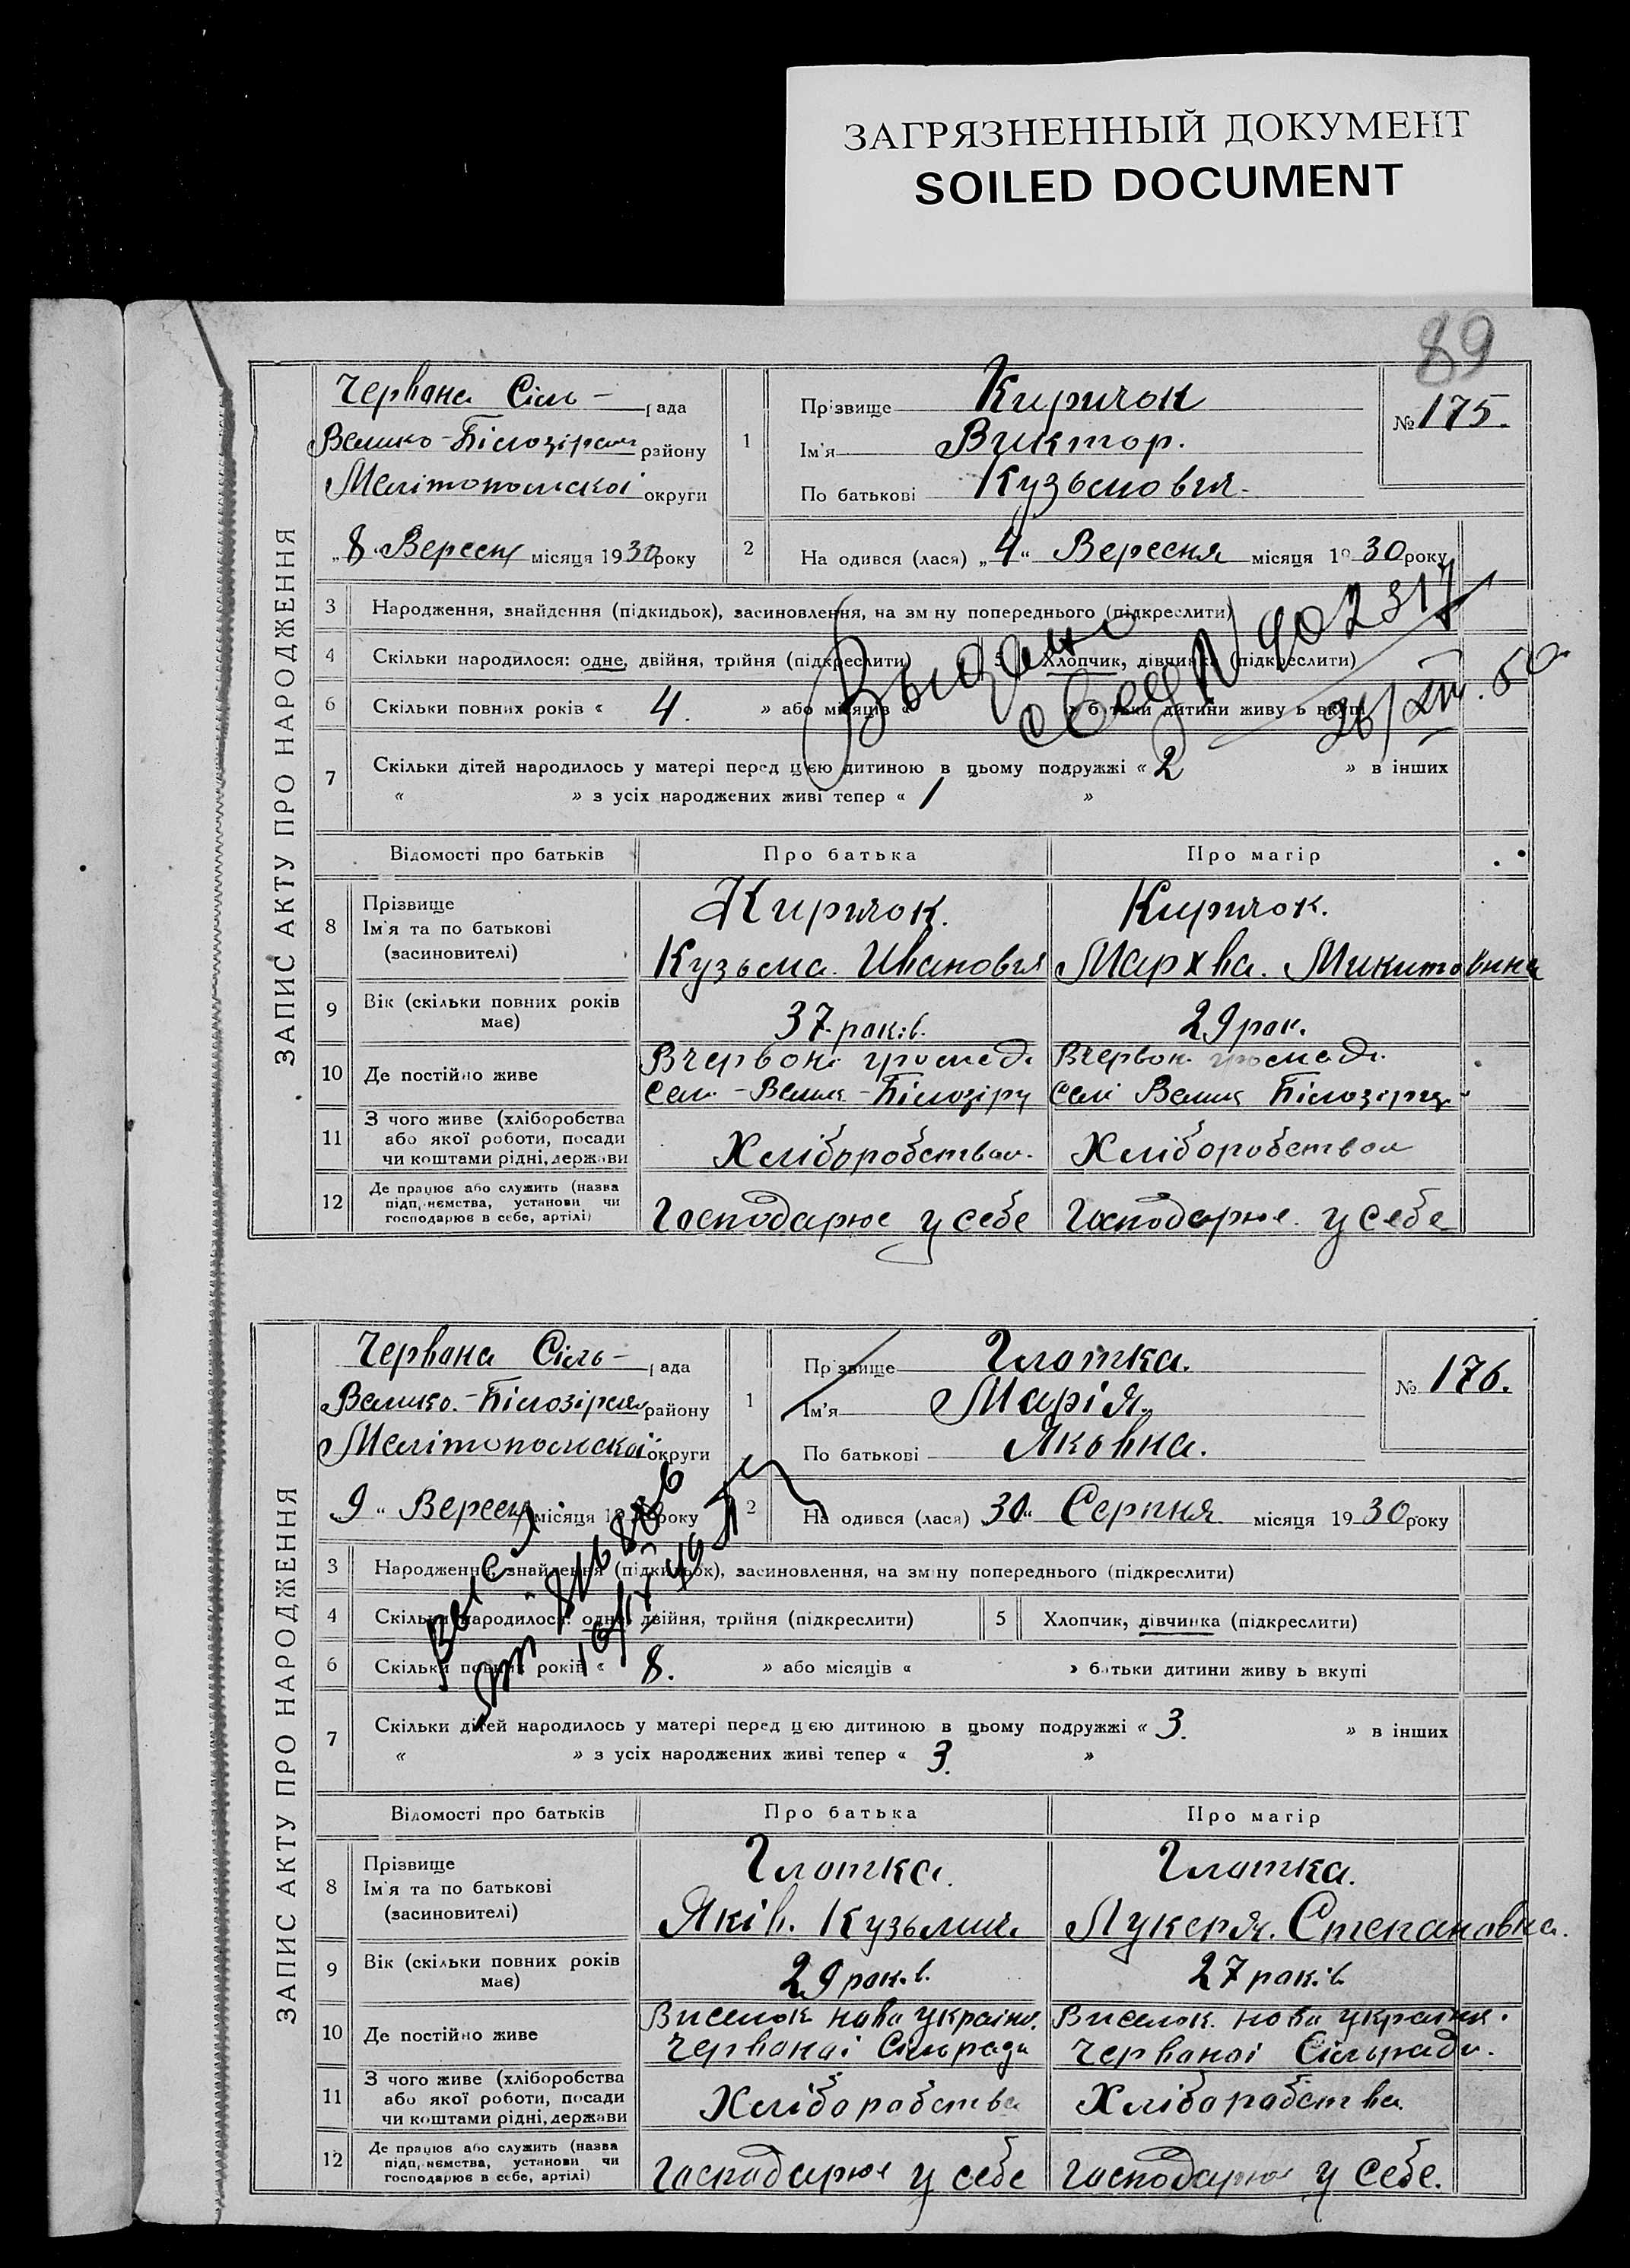 ЗАГРЯЗНЕННЫЙ ДОКУМЕНТ
SOILED DOCUMENT
89
ЗАПИС АКТУ ПРО НАРОДЖЕННЯ
Червона Сіль- рада
Велико-Білозірськ району
Мелітопольскоі округи
„8" Вересня місяця 1930 року
1
Прізвище Киричок
Ім'я Виктор.
По батькові Кузьмович.
№ 175.
2 На одився (лася) „4" Вересня місяця 1930 року
3 Народження, знайдення (підкидьок), засиновлення, на зм ну попереднього (підкреслити)
4 Скільки народилося: одне, двійня, трійня (підкреслити) 5 Хлопчик, дівчинка (підкреслити)
6 Скільки повних років « 4. » або місяців « » батьки дитини живу ь вкупі
Выдано
свид N 902317
26/XII. 50
7 Скільки дітей народилось у матері перед цією дитиною в цьому подружжі « 2 » в інших
« » з усіх народжених живі тепер « 1 »
Відомості про батьків Про батька Про матір
8 Прізвище
Ім'я та по батькові
(засновителі)
Киричок.
Кузьма Иванович
Киричок.
Мархва. Микитовина
9 Вік (скільки повних років має) 37 років. 29 рок.
10 Де постійно живе
В червоні громаді
Селі - Велик - Білозірц
В червон громаді
Селі Велик Білозірц
11 З чого живе (хліборобства
або якої роботи, посади
чи коштами рідні, держави
Хліборобством. Хліборобством
12 Де працює або служить (назва
підп,иємства, установи чи
господарює в себе, артілі)
Господарює у себе Господарює у себе
ЗАПИС АКТУ ПРО НАРОДЖЕННЯ
Червона Сіль- рада
Велико-Білозірськ району
Мелітопольскоі округи
9" Вересня місяця 1930 року
1
Прізвище Глотка.
Ім'я Марія.
По батькові Яковна.
№ 176.
2 На одився (лася) „30" Серпня місяця 1930 року
3 Народження, знайдення (підкидьок), засиновлення, на зм ну попереднього (підкреслити)
4 Скільки народилося: одне, двійня, трійня (підкреслити) 5 Хлопчик, дівчинка (підкреслити)
6 Скільки повних років « 8. » або місяців « » батьки дитини живу ь вкупі
7 Скільки дітей народилось у матері перед цією дитиною в цьому подружжі « 3. » в інших
« » з усіх народжених живі тепер « 3. »
Відомості про батьків Про батька Про матір
8 Прізвище
Ім'я та по батькові
(засиновителі)
Глотка.
Яків. Кузьмич.
Глотка.
Лукеря. Степановна.
9 Вік (скільки повних років має) 29 років. 27 років
10 Де постійно живе
Виселок нова україна.
Червоноі Сільради
Виселок нова україна.
Червоноі Сільради.
11 З чого живе (хліборобства
або якої роботи, посади
чи коштами рідні, держави
Хліборобства Хліборобства
12 Де працює або служить (назва
підп,иємства, установи чи
господарює в себе, артілі)
Господарює у себе Господарює у себе.